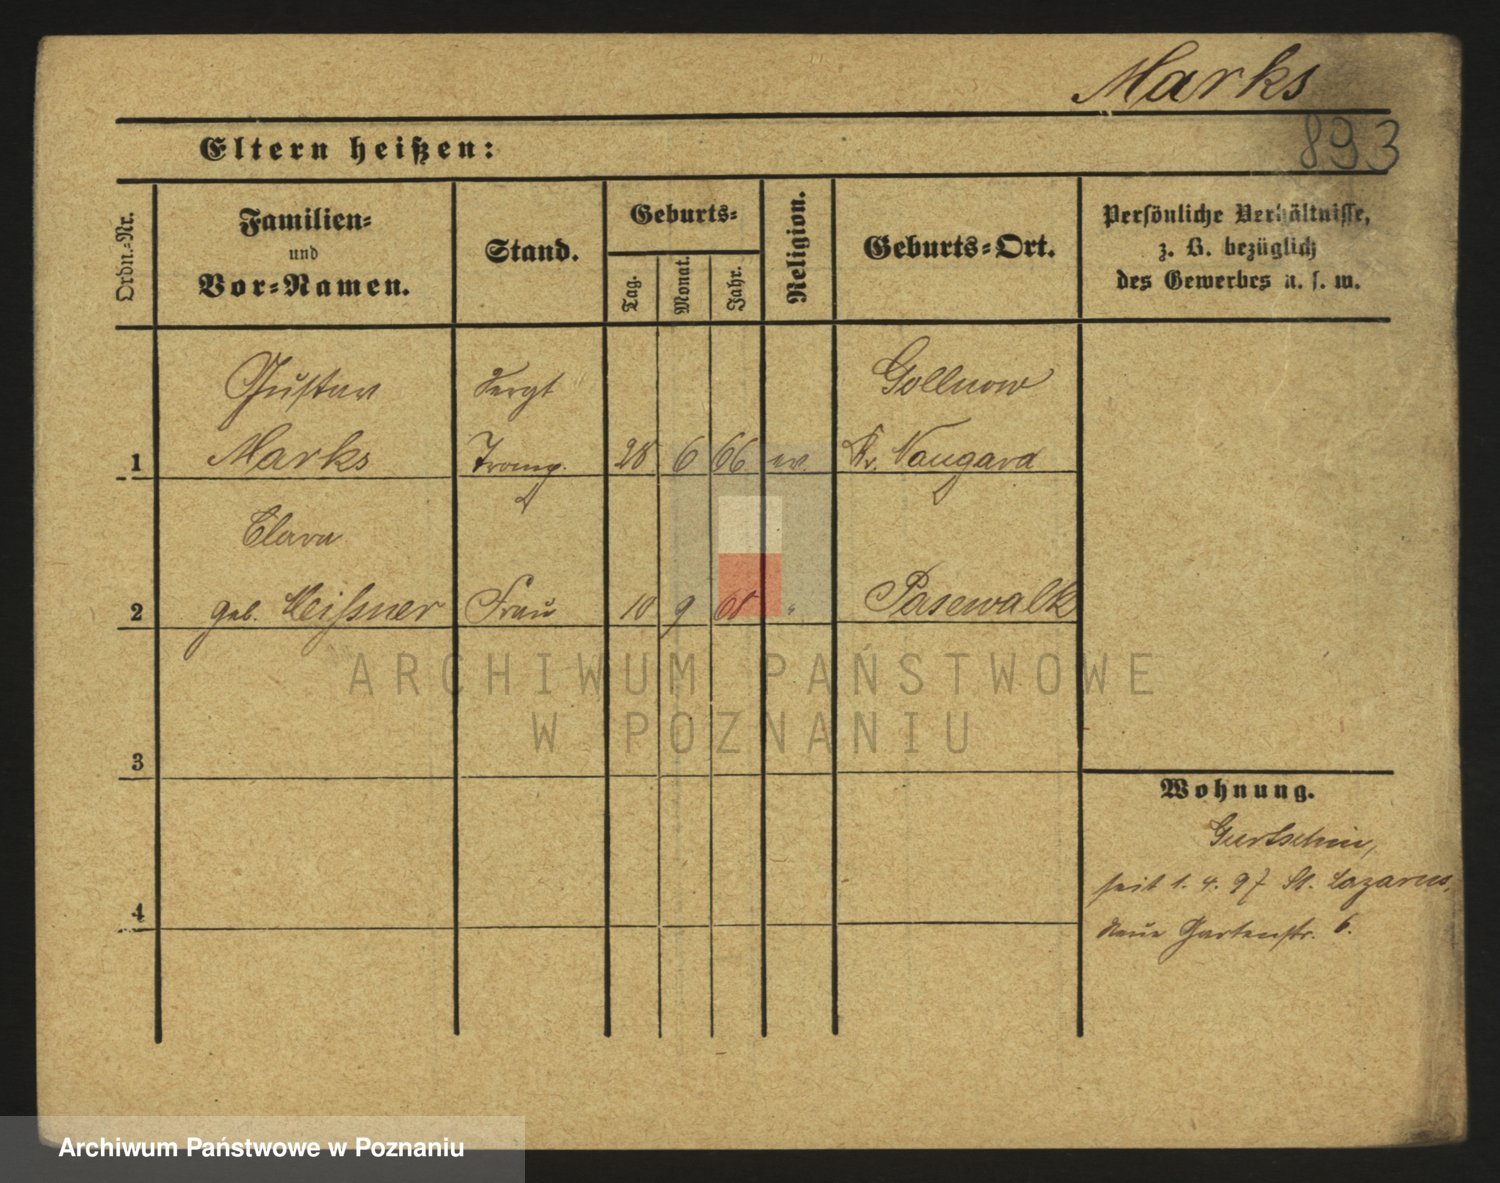 Marks
893
Eltern heißen:
Ordn.-Nr.
Familien-
und
Vor-Namen.
Stand.
Geburts-
Tag.
Monat.
Jahr.
Religion.
Geburts-Ort.
Persönliche Verhältnisse,
z. B. bezüglich
des Gewerbes u. s. w.
Gustav
Sergt
Gollnow
1
Marks
Tromp.
28
6
66
ev.
Kr. Naugard
Clara
2
geb. Meißner
Frau
10
9
68
"
Pasewalk
ARCHIWUM PAŃSTWOWE
W POZNANIU
3
Wohnung.
Gurtschin,
seit 1. 4. 97 St. Lazarus,
4
Neue Gartenstr. 6.
Archiwum Państwowe w Poznaniu